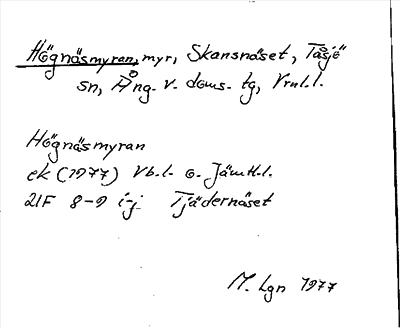 Högnäsmyran, myr, Skansnäset, Tåsjö
sn, Ång. v. doms. tg, Vrnl.l.
Högnäsmyran
ek (1977) Vb.l. o. Jämtl.l.
21F 8-9 i-j Tjädernäset
M. Lgn 1977